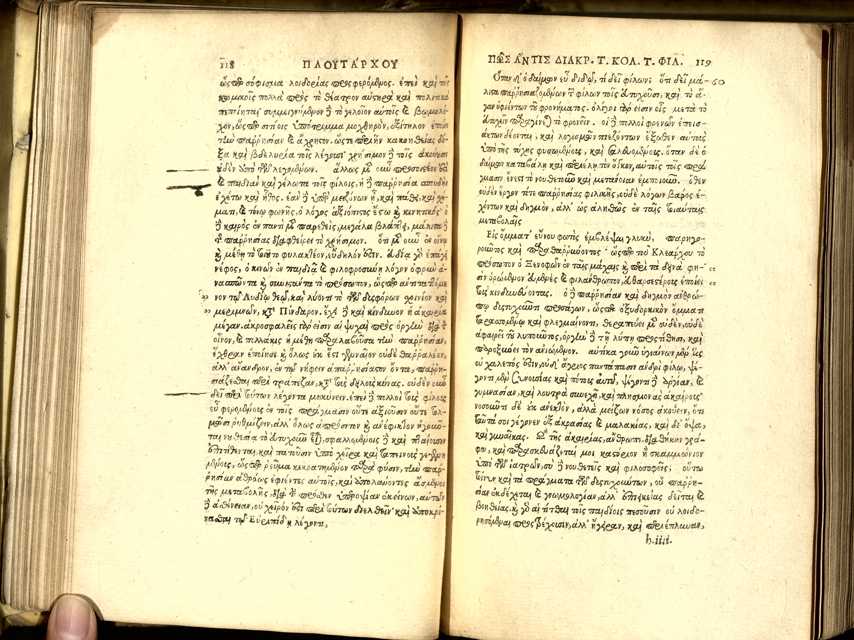 118 ΠΛΟΥΤΑΡΧΟΥ
ὥσπερ σόφισμα λοιδορίας προσφερόμενον. ἐπεὶ καὶ τοῖς
κωμικοῖς πολλὰ πρὸς τὸ θέατρον αὐστηρὰ καὶ πολιτικὰ
πεποίηται· συμμεμιγμένον δὲ τὸ γελοῖον αὐτοῖς καὶ βωμολό
χον, ὥσπερ σιτίοις ὑπότριμμα μοχθηρὸν, ἐξίτηλον ἐποίει
τὴν παρρησίαν καὶ ἄχρηστον. ὥστε περιῆν κακοηθείας δό
ξα καὶ βδελυρία τοῖς λέγουσι· χρήσιμον δὲ τοῖς ἀκούουσι
οὐδὲν ἀπὸ τῶν λεγομένων. ἄλλως μὲν οὖν προσοιστέον ἐστὶ
καὶ παιδιὰν καὶ γέλωτα τοῖς φίλοις, ἡ δὲ παρρησία σπουδὴν
ἐχέτω καὶ ἦθος. ἐὰν δὲ ὑπὲρ μειζόνων ᾖ, καὶ πάθει καὶ σχή
ματι, καὶ τόνῳ φωνῆς, ὁ λόγος ἀξιόπιστος ἔστω καὶ κινητικός· ὁ
δὲ καιρὸς ἐν παντὶ μὲν παρεθεὶς, μεγάλα βλάπτει, μάλιστα δὲ
τῆς παρρησίας διαφθείρει τὸ χρήσιμον. ὅτι μὲν οὖν ἐν οἴνῳ
καὶ μέθῃ τὸ τοιοῦτο φυλακτέον, εὔδηλόν ἐστιν. εὐδίᾳ γὰρ ἐπάγει
νέφος, ὁ κινῶν ἐν παιδιᾷ καὶ φιλοφροσύνῃ λόγον ὀφρῦν ἀ-
νασπῶντα καὶ συνιστάντα τὸ πρόσωπον, ὥσπερ ἀντιταττόμε
νον τῷ Λυδίῳ θεῷ, καὶ λύοντι τὸ τῶν δυσφόρων σχοινίον καὶ
μεριμνῶν, κατὰ Πίνδαρον. ἔχει δὲ καὶ κίνδυνον ἡ ἀκαιρία
μέγαν. ἀκροσφαλεῖς γάρ εἰσιν αἱ ψυχαὶ πρὸς ὀργὴν διὰ τὸν
οἶνον, καὶ πολλάκις ἡ μέθη παραλαβοῦσα τὴν παρρησίαν,
ἔχθραν ἐποίησε· καὶ ὅλως οὐκ ἔστι γενναῖον οὐδὲ θαρραλέον,
ἀλλ' ἄνανδρον, ἐν τῷ νήφειν ἀπαρρησίαστον ὄντα, παρρη-
σιάζεσθαι παρὰ τράπεζαν, κατὰ τοὺς δειλοὺς κύνας. οὐδὲν οὖν
δεῖ περὶ τούτων λέγοντα μηκύνειν. ἐπεὶ δὲ πολλοὶ τοὺς φίλους
εὖ φερομένους ἐν τοῖς πράγμασιν οὔτε ἀξιοῦσιν οὔτε τολ-
μῶσι ῥυθμίζειν, ἀλλ' ὅλως ἀπρόσιτον καὶ ἀνέφικτον ἡγοῦν-
ται νουθεσίᾳ τὸ εὐτυχοῦν εἶναι, σφαλλομένοις δὲ καὶ πταίουσιν
ἐπιτίθενται, καὶ πατοῦσιν ὑπὸ χεῖρα καὶ ταπεινοὺς γεγενη
μένους, ὥσπερ ῥεῦμα κεκρατημένον παρὰ φύσιν, τὴν παρ-
ρησίαν ἀθρόως ἐφιέντες αὐτοῖς, καὶ ἀπολαύοντες ἄσμενοι
τῆς μεταβολῆς, διὰ τὴν πρώτην ὑπεροψίαν ἐκείνων, αὐτῶν
δὲ ἀσθένειαν, οὐ χεῖρόν ἐστι περὶ τούτων διελθεῖν· καὶ ἀποκρί-
νασθαι τῷ Εὐριπίδῃ λέγοντι,
ΠΩ͂Σ Ἄ́ΝΤΙΣ ΔΙΑΚΡ. Τ. ΚΟΛ. Τ. ΦΙΛ. 119
Ὅταν δ' ὁ δαίμων εὖ διδῷ, τί δεῖ φίλων; ὅτι δεῖ μά-
λιστα παρρησιαζομένων φίλων τοῖς εὐτυχοῦσι, καὶ τὸ ἄ-
γαν ὑφιέντων τοῦ φρονήματος. ὀλίγοι γάρ εἰσιν οἷς μετὰ τὸ
εὐτυχεῖν παραγίνεται τὸ φρονεῖν. οἱ δὲ πολλοὶ φρενῶν ἐπεισ-
άκτων δέονται, καὶ λογισμῶν πιεζόντων ἔξωθεν αὐτοὺς
ὑπὸ τῆς τύχης φυσωμένους, καὶ σαλευομένους. ὅταν δὲ ὁ
δαίμων καταβάλῃ καὶ περιέλῃ τὸν ὄγκον, αὐτοῖς τοῖς πρά
γμασιν ἔνεστι τὸ νουθετοῦν καὶ μετάνοιαν ἐμποιοῦν. ὅθεν
οὐδὲν ἔργον τότε παρρησίας φιλικῆς, οὐδὲ λόγων βάρος ἐ-
χόντων καὶ δηγμὸν, ἀλλ' ὡς ἀληθῶς ἐν ταῖς τοιαύταις
μεταβολαῖς
Εἰς ὄμματ' εὔνου φωτὸς ἐμβλέψαι γλυκύ, παρηγο-
ροῦντος καὶ παραθαρρύνοντος· ὥσπερ τοῦ Κλεάρχου τὸ
πρόσωπον ὁ Ξενοφῶν ἐν ταῖς μάχαις καὶ παρὰ τὰ δεινά φη-
σιν ὁρώμενον εὐμενὲς καὶ φιλάνθρωπον, εὐθαρσεστέρους ποιεῖν
τοὺς κινδυνεύοντας. ὁ δὲ παρρησίαν καὶ δηγμὸν ἀνθρώ-
πῳ δυστυχοῦντι προσάγων, ὥσπερ ὀξυδορκικὸν ὄμματι
ταρασσομένῳ καὶ φλεγμαίνοντι, θεραπεύει μὲν οὐδὲν, οὐδὲ
ἀφαιρεῖ τοῦ λυποῦντος, ὀργὴν δὲ τῇ λύπῃ προστίθησι, καὶ
παροξύνει τὸν ἀνιώμενον. αὐτίκα γοῦν ὑγιαίνων μέν τις
οὐ χαλεπός ἐστιν, οὐδ' ἄγριος παντάπασιν ἀνδρὶ φίλῳ, ψέ-
γοντι μὲν συνουσίας καὶ πότους αὐτοῦ, ψέγοντι δὲ ἀργίαν, καὶ
ἀγυμνασίαν, καὶ λουτρὰ συνεχῆ, καὶ πλησμονὰς ἀκαίρους·
νοσοῦντι δὲ οὐκ ἀνεκτὸν, ἀλλὰ μείζων νόσος ἀκούειν, ὅτι
ταῦτά σοι γέγονεν ἐξ ἀκρασίας καὶ μαλακίας, καὶ δι' ὄψα,
καὶ γυναῖκας. ὢ τῆς ἀκαιρίας, ἄνθρωπε, διαθήκην γρά-
φω, καὶ παρασκευάζεταί μοι καστόριον ἢ σκαμμώνιον
ὑπὸ τῶν ἰατρῶν, σὺ δὲ νουθετεῖς καὶ φιλοσοφεῖς; οὕτω
τοίνυν καὶ τὰ πράγματα τῶν δυστυχούντων, οὐ παρρη-
σίαν ἐκδέχεται καὶ γνωμολογίαν, ἀλλ' ἐπιεικείας δεῖται καὶ
βοηθείας. καὶ γὰρ αἱ τίτθαι τοῖς παιδίοις πεσοῦσιν οὐ λοιδο-
ρησόμεναι προστρέχουσιν, ἀλλ' ἤγειραν, καὶ περιέπλυναν,
h.iiii.